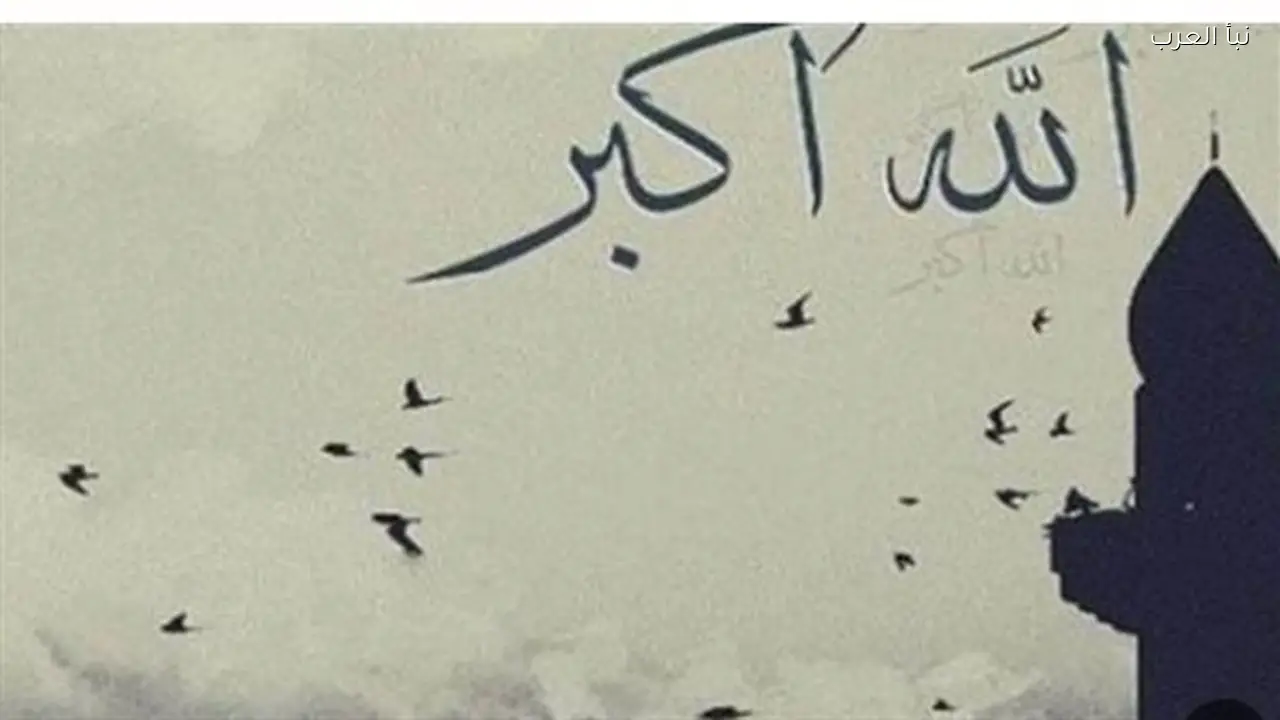 نبأ العرب
اللَّه أَكبر
الله أكبر